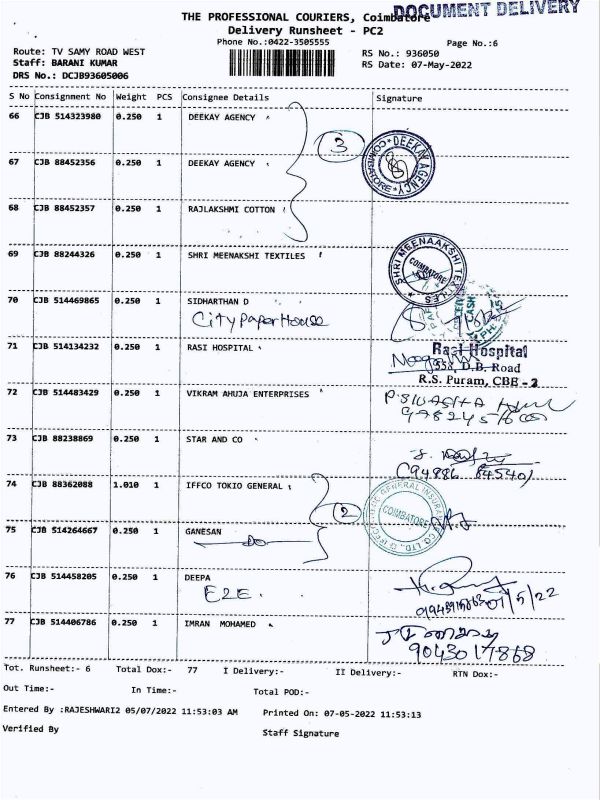 DOCUMENT DELIVERY
THE PROFESSIONAL COURIERS, Coimbatore
Delivery Runsheet - PC2
Phone No.:0422-3505555
Page No.:6
Route: TV SAMY ROAD WEST
RS No.: 936050
Staff: BARANI KUMAR
RS Date: 07-May-2022
DRS No.: DCJB93605006
S No Consignment No Weight PCS Consignee Details Signature
66 CJB 514323980 0.250 1 DEEKAY AGENCY
3
DEEKAY AGENCY * COIMBATORE *
67 CJB 88452356 0.250 1 DEEKAY AGENCY
68 CJB 88452357 0.250 1 RAJLAKSHMI COTTON
69 CJB 88244326 0.250 1 SHRI MEENAKSHI TEXTILES
SHRI MEENAAKSHI TEXTILES * COIMBATORE
70 CJB 514469865 0.250 1 SIDHARTHAN D
City Paper House
71 CJB 514134232 0.250 1 RASI HOSPITAL
Rasi Hospital
558, D.B. Road
R.S. Puram, CBE - 2
72 CJB 514483429 0.250 1 VIKRAM AHUJA ENTERPRISES
73 CJB 88238869 0.250 1 STAR AND CO
74 CJB 88362088 1.010 1 IFFCO TOKIO GENERAL
2
COIMBATORE
75 CJB 514264667 0.250 1 GANESAN
Do
76 CJB 514458205 0.250 1 DEEPA
E2E.
07/5/22
77 CJB 514406786 0.250 1 IMRAN MOHAMED
9043017868
Tot. Runsheet:- 6 Total Dox:- 77 I Delivery:- II Delivery:- RTN Dox:-
Out Time:- In Time:- Total POD:-
Entered By :RAJESHWARI2 05/07/2022 11:53:03 AM Printed On: 07-05-2022 11:53:13
Verified By Staff Signature